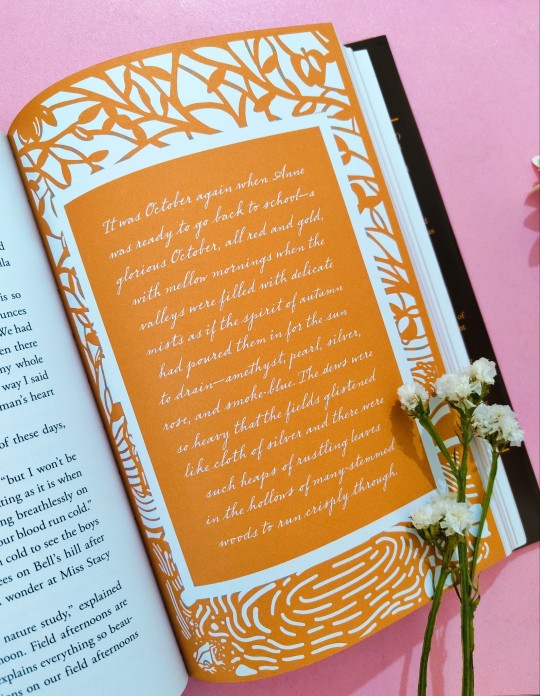 d
lla
is so
ounces
We had
en there
ny whole
way I said
man's heart
of these days,
"but I won't be
ting as it is when
ng breathlessly on
our blood run cold."
cold to see the boys
ees on Bell's hill after
wonder at Miss Stacy
nature study," explained
noon. Field afternoons are
xplains everything so beau-
ons on our field afternoons
It was October again when Anne
was ready to go back to school—a
glorious October, all red and gold,
with mellow mornings when the
valleys were filled with delicate
mists as if the spirit of autumn
had poured them in for the sun
to drain—amethyst, pearl, silver,
rose, and smoke-blue. The dews were
so heavy that the fields glistened
like cloth of silver and there were
such heaps of rustling leaves
in the hollows of many-stemmed
woods to run crisply through.